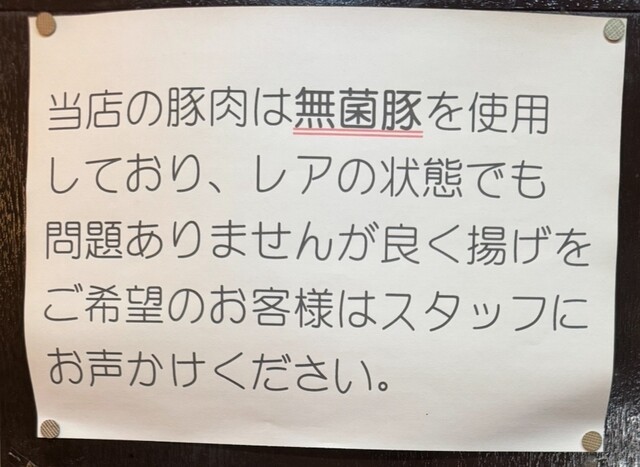 当店の豚肉は無菌豚を使用
しており、レアの状態でも
問題ありませんが良く揚げを
ご希望のお客様はスタッフに
お声かけください。